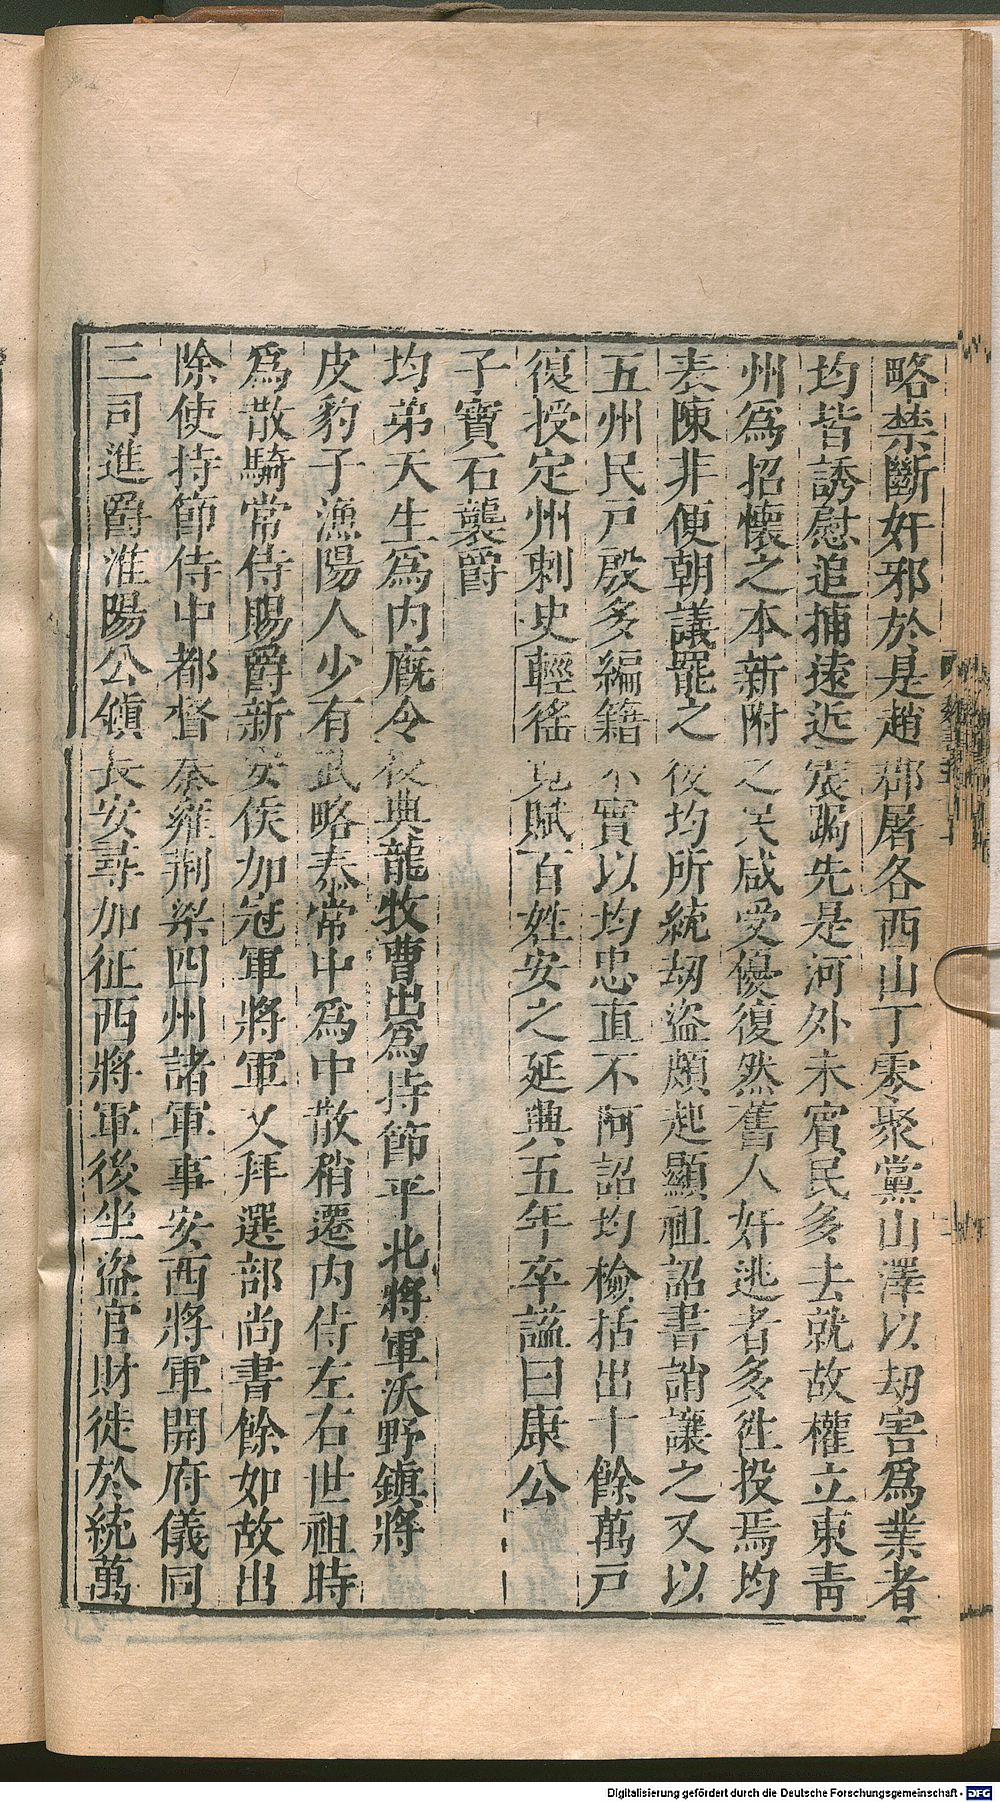 略禁斷奸邪於是趙郡屠各西山丁零聚黨山澤以劫害爲業者
均皆誘慰追捕遠近震跼先是河外未賓民多去就故權立東靑
州爲招懷之本新附之民咸受優復然舊人奸逃者多徃投焉均
表陳非便朝議罷之後均所統劫盜頗起顯祖詔書誚讓之又以
五州民戸殷多編籍不實以均忠直不阿詔均檢括出十餘萬戸
復授定州刺史輕徭寬賦百姓安之延興五年卒謚曰康公
子寶石襲爵
均弟天生爲内廐令後典龍牧曹出爲持節平北將軍沃野鎭將
皮豹子漁陽人少有武略泰常中爲中散稍遷内侍左右世祖時
爲散騎常侍賜爵新安侯加冠軍將軍又拜選部尚書餘如故出
除使持節侍中都督秦雍荆梁四州諸軍事安西將軍開府儀同
三司進爵淮陽公鎭長安尋加征西將軍後坐盜官財徙於統萬
Digitalisierung gefördert durch die Deutsche Forschungsgemeinschaft - DFG